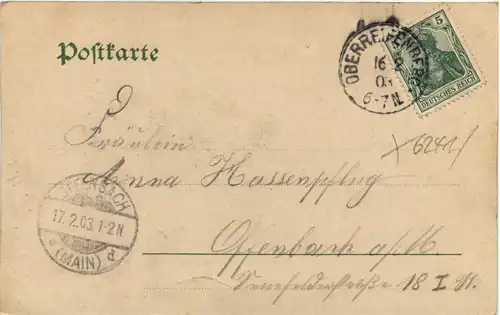 Postkarte
5
OBERREIFENBERG
16 2
03
6-7N.
DEUTSCHES REICH
Fräulein
6241
Anna Hassenpflug
OFFENBACH
17.2.03.1-2N.
* (MAIN) d
Offenbach a/M.
Senefelderstraße 18 I St.